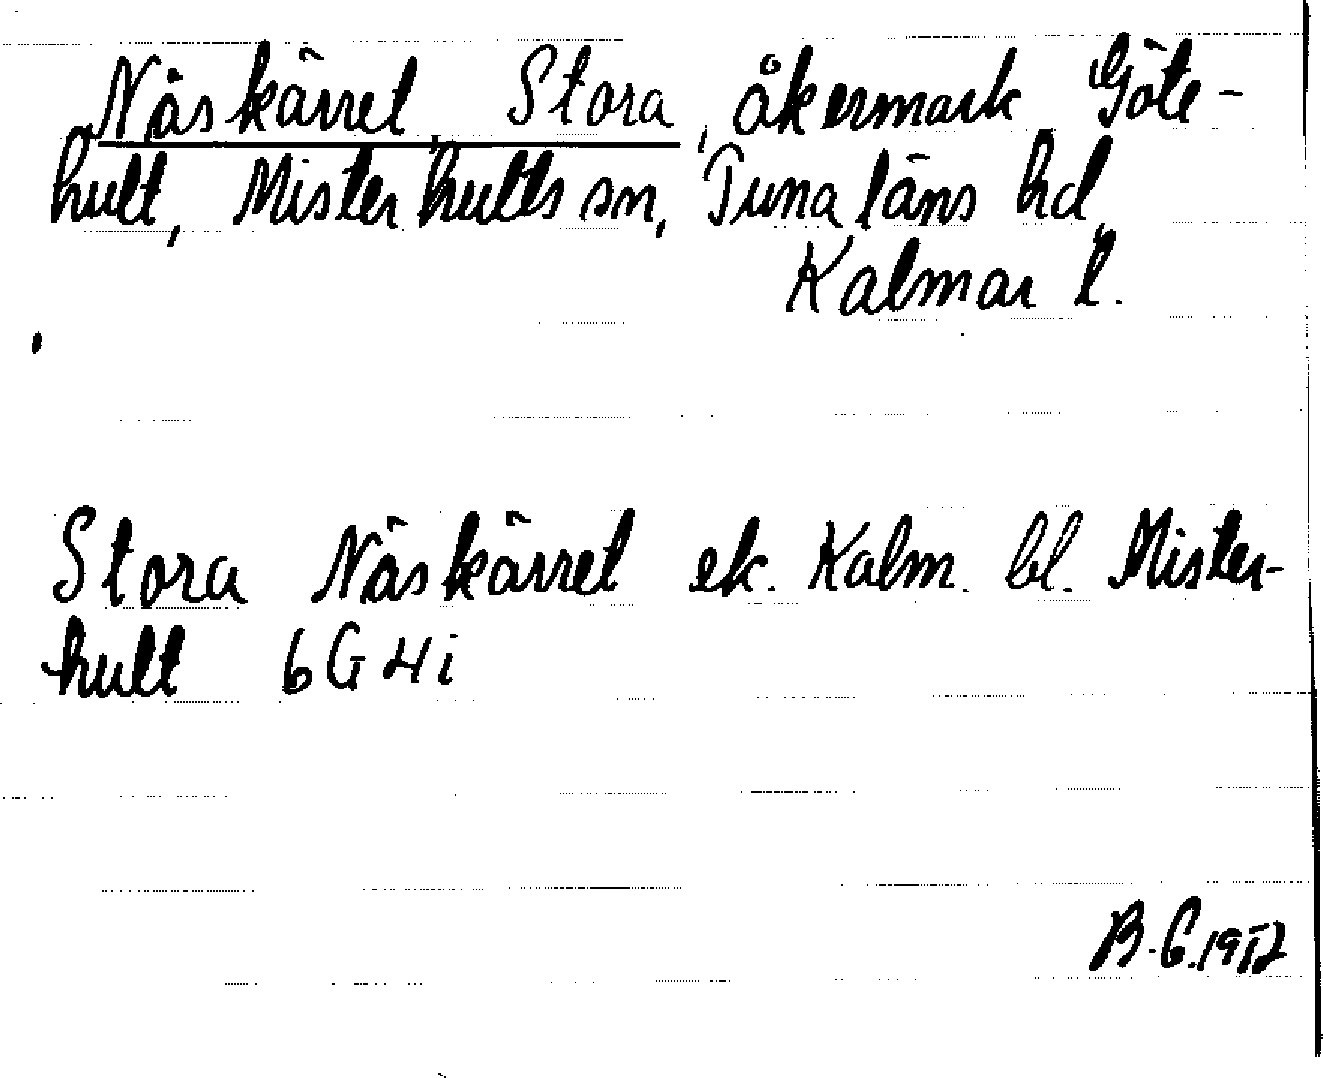 Näskärret, Stora, åkermark Göte-
hult, Misterhults sn, Tunaläns hd,
Kalmar l.
Stora Näskärret ek. Kalm. bl. Mister-
hult 6G4i
B.G.1952